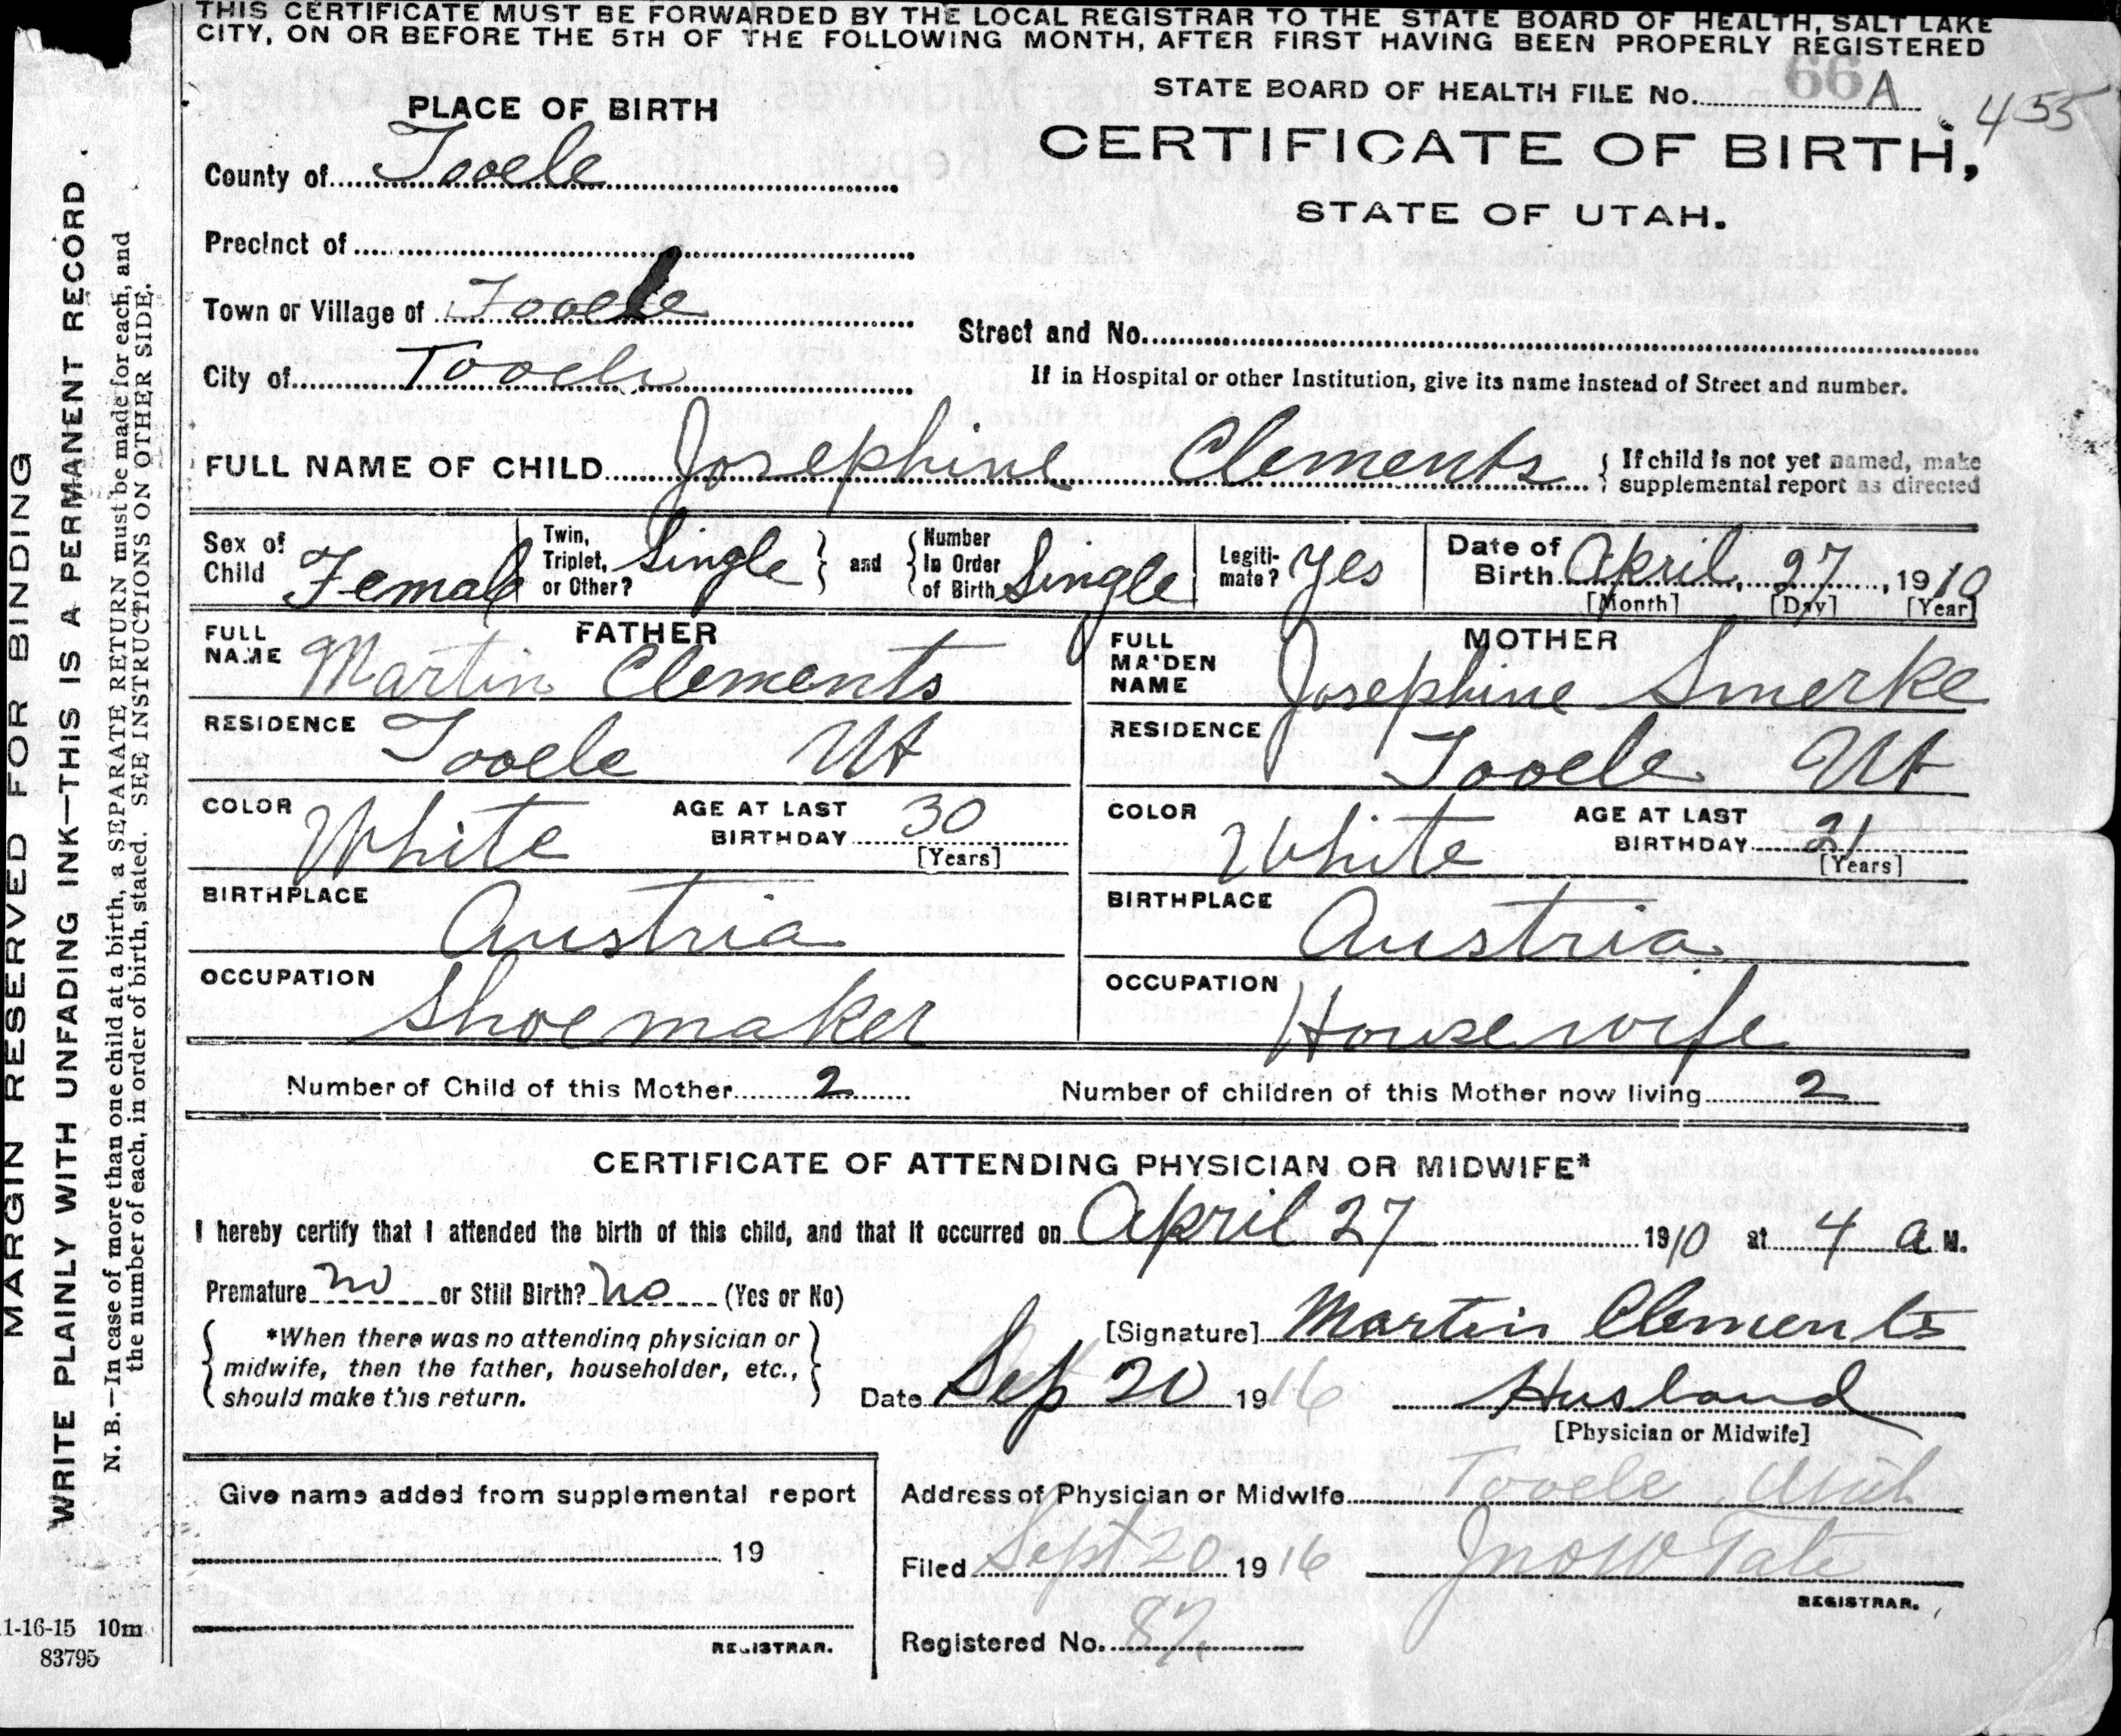 THIS CERTIFICATE MUST BE FORWARDED BY THE LOCAL REGISTRAR TO THE STATE BOARD OF HEALTH, SALT LAKE
CITY, ON OR BEFORE THE 5TH OF THE FOLLOWING MONTH, AFTER FIRST HAVING BEEN PROPERLY REGISTERED
STATE BOARD OF HEALTH FILE No. 66 A 455
PLACE OF BIRTH
CERTIFICATE OF BIRTH,
STATE OF UTAH.
County of Tooele
Precinct of
Town or Village of Tooele
Street and No.
City of Tooele
If in Hospital or other Institution, give its name instead of Street and number.
FULL NAME OF CHILD Josephine Clements { If child is not yet named, make
supplemental report as directed
Sex of Child Female
Twin, Triplet, or Other? Single } and { Number In Order of Birth Single
Legiti-mate? Yes
Date of Birth April, 27, 1910
[Month] [Day] [Year]
FATHER
FULL NAME Martin Clements
RESIDENCE Tooele Ut
COLOR White AGE AT LAST BIRTHDAY 30
[Years]
BIRTHPLACE Austria
OCCUPATION Shoemaker
MOTHER
FULL MAIDEN NAME Josephine Smerke
RESIDENCE Tooele Ut
COLOR White AGE AT LAST BIRTHDAY 21
[Years]
BIRTHPLACE Austria
OCCUPATION Housewife
Number of Child of this Mother 2 Number of children of this Mother now living 2
CERTIFICATE OF ATTENDING PHYSICIAN OR MIDWIFE*
I hereby certify that I attended the birth of this child, and that it occurred on April 27 1910 at 4 a M.
Premature no or Still Birth? no (Yes or No)
{ *When there was no attending physician or
midwife, then the father, householder, etc.,
should make this return. }
[Signature] Martin Clements
Date Sep 20 1916 Husband
[Physician or Midwife]
Give name added from supplemental report
19
REGISTRAR.
Address of Physician or Midwife Tooele Utah
Filed Sept 20 1916 Jno W Tate
REGISTRAR.
Registered No. 87
MARGIN RESERVED FOR BINDING
WRITE PLAINLY WITH UNFADING INK—THIS IS A PERMANENT RECORD
N. B.—In case of more than one child at a birth, a SEPARATE RETURN must be made for each, and
the number of each, in order of birth, stated. SEE INSTRUCTIONS ON OTHER SIDE.
1-16-15 10m
83795